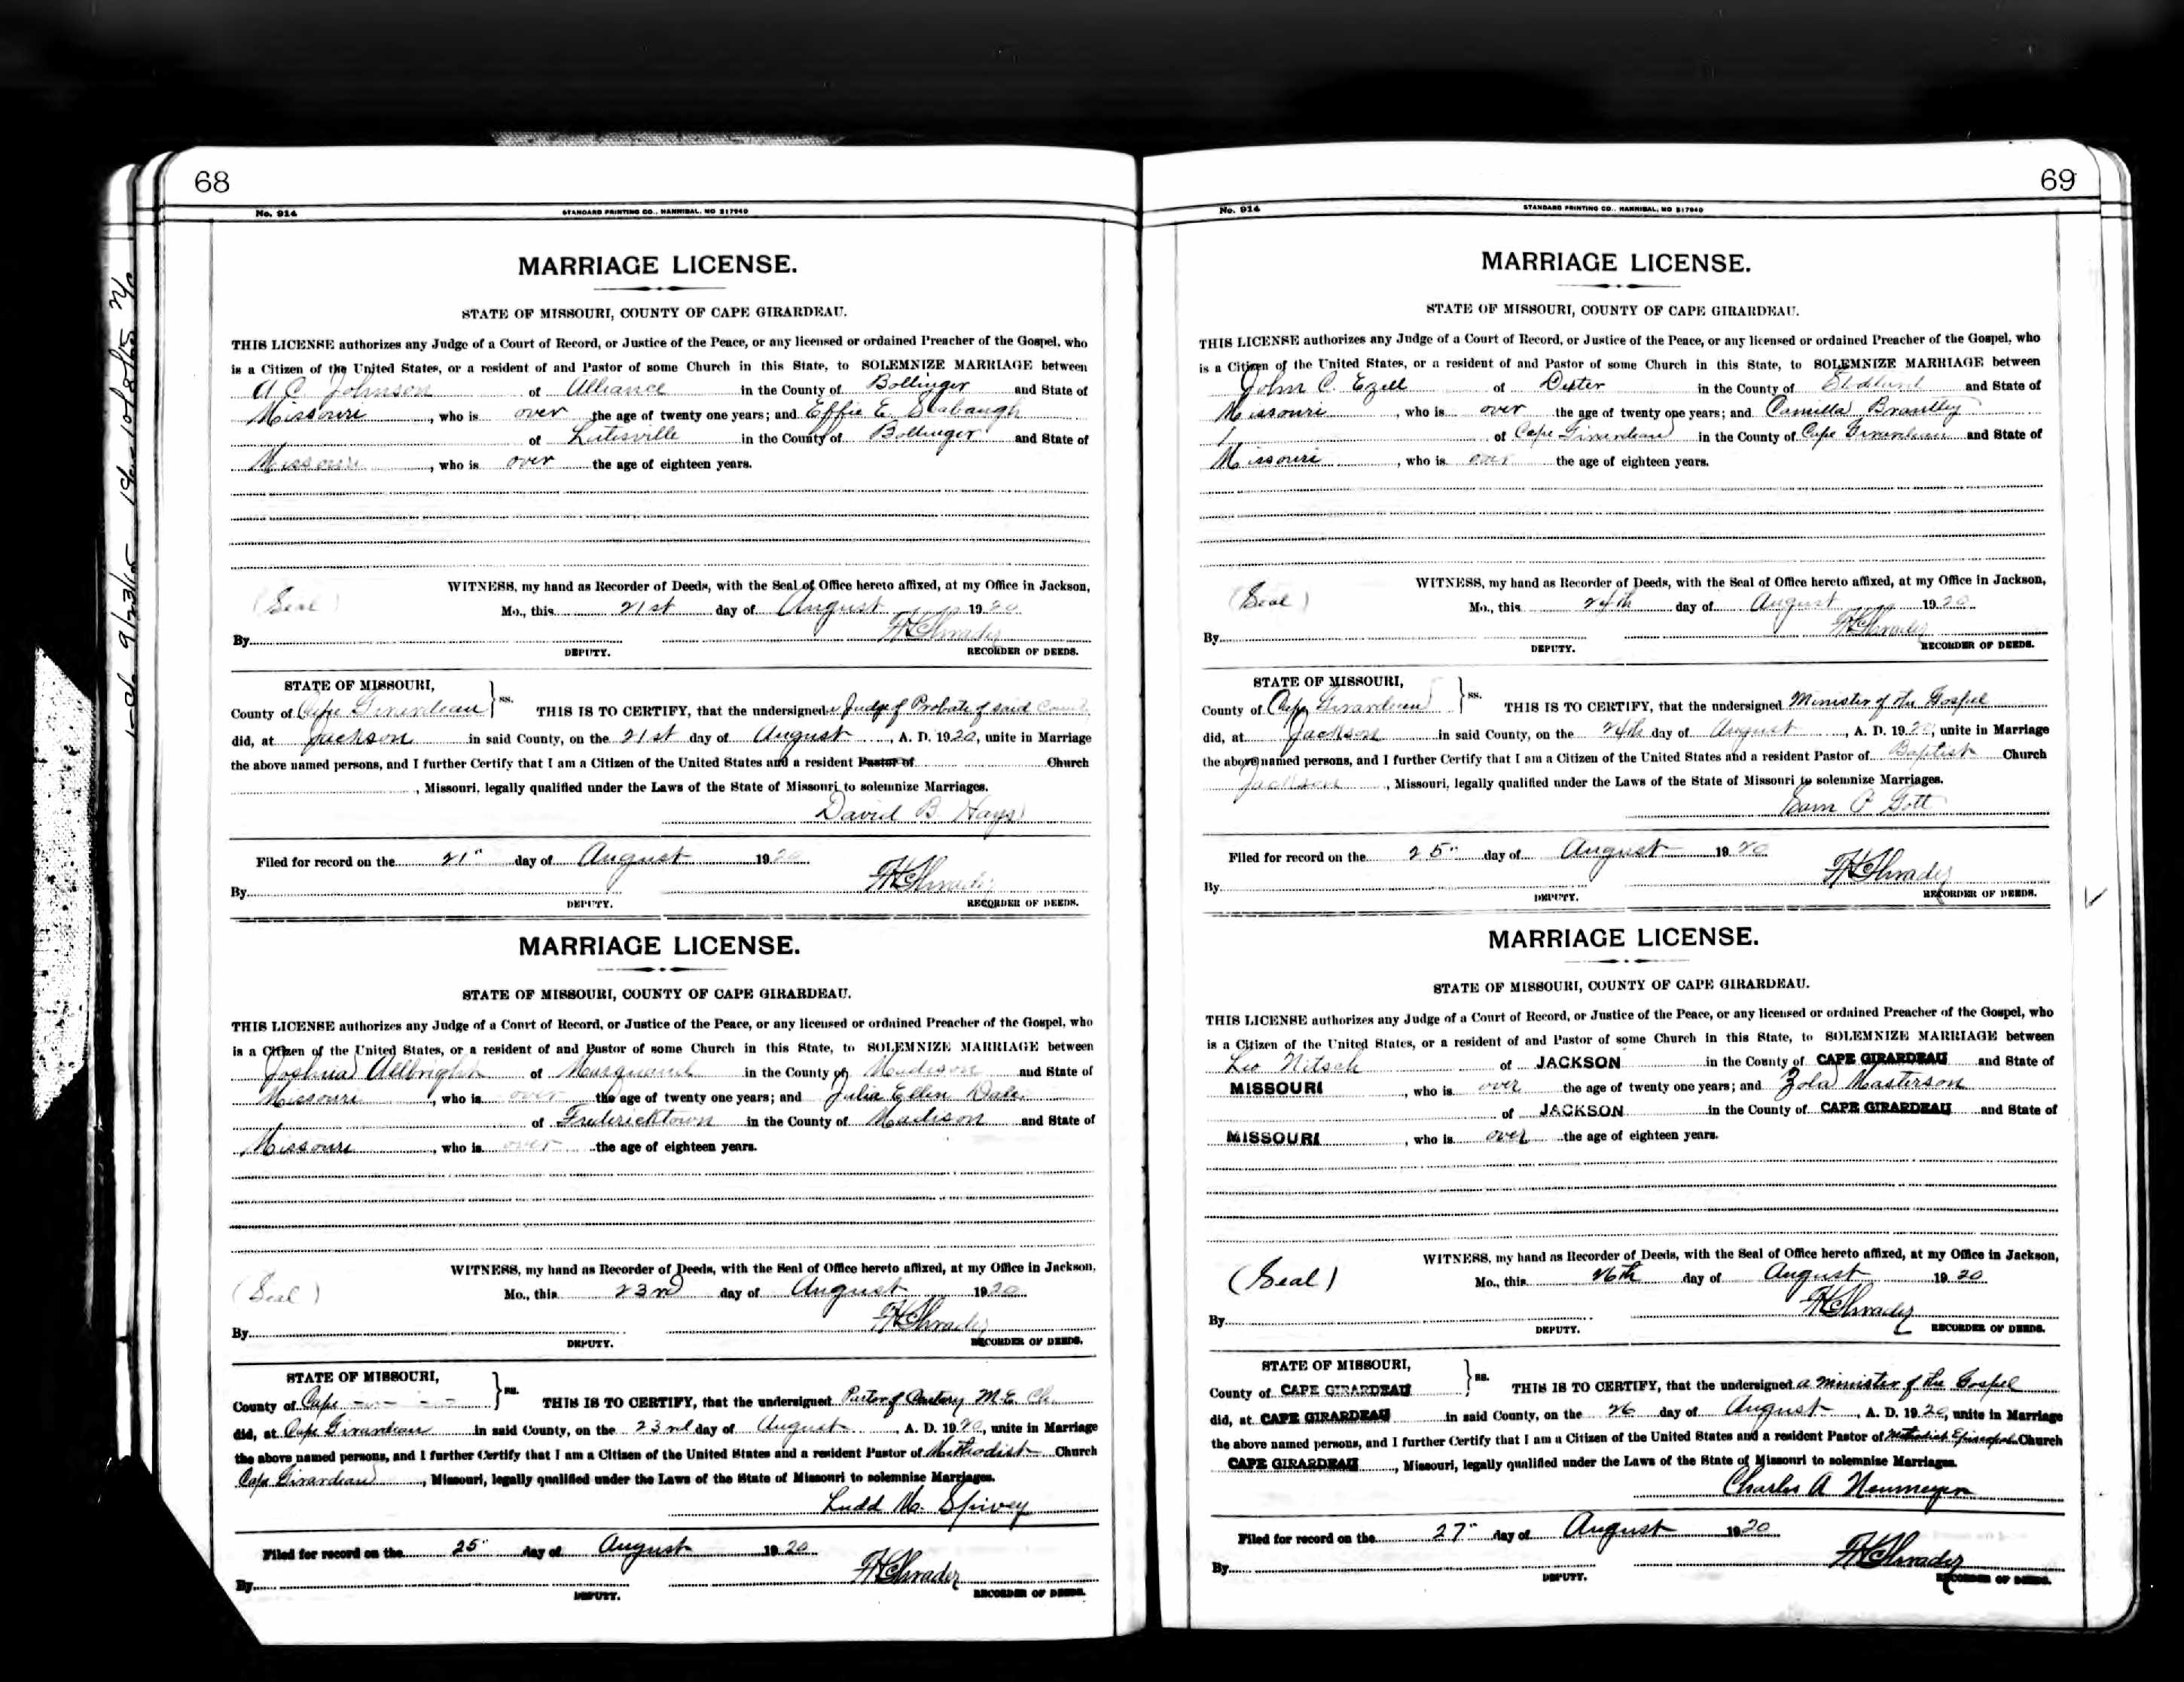 68
No. 914 STANDARD PRINTING CO., HANNIBAL, MO 217940
MARRIAGE LICENSE.
STATE OF MISSOURI, COUNTY OF CAPE GIRARDEAU.
THIS LICENSE authorizes any Judge of a Court of Record, or Justice of the Peace, or any licensed or ordained Preacher of the Gospel, who
is a Citizen of the United States, or a resident of and Pastor of some Church in this State, to SOLEMNIZE MARRIAGE between
A C Johnson of Alliance in the County of Bollinger and State of
Missouri, who is over the age of twenty one years; and Effie E. Seabaugh
of Lutesville in the County of Bollinger and State of
Missouri, who is over the age of eighteen years.
WITNESS, my hand as Recorder of Deeds, with the Seal of Office hereto affixed, at my Office in Jackson,
(Seal) Mo., this 21st day of August 1920
By
DEPUTY. RECORDER OF DEEDS.
STATE OF MISSOURI,
County of Cape Girardeau } ss. THIS IS TO CERTIFY, that the undersigned Judge of Probate of said County
did, at Jackson in said County, on the 21st day of August, A. D. 1920, unite in Marriage
the above named persons, and I further Certify that I am a Citizen of the United States and a resident Pastor of Church
, Missouri, legally qualified under the Laws of the State of Missouri to solemnize Marriages.
David B Hays
Filed for record on the 21" day of August 1920
By
DEPUTY. RECORDER OF DEEDS.
MARRIAGE LICENSE.
STATE OF MISSOURI, COUNTY OF CAPE GIRARDEAU.
THIS LICENSE authorizes any Judge of a Court of Record, or Justice of the Peace, or any licensed or ordained Preacher of the Gospel, who
is a Citizen of the United States, or a resident of and Pastor of some Church in this State, to SOLEMNIZE MARRIAGE between
Joshua Allbright of Marquand in the County of Madison and State of
Missouri, who is over the age of twenty one years; and Julia Ellen Dale
of Fredericktown in the County of Madison and State of
Missouri, who is over the age of eighteen years.
WITNESS, my hand as Recorder of Deeds, with the Seal of Office hereto affixed, at my Office in Jackson,
(Seal) Mo., this 23rd day of August 1920
By
DEPUTY. RECORDER OF DEEDS.
STATE OF MISSOURI,
County of Cape } ss. THIS IS TO CERTIFY, that the undersigned Pastor of Centenary M. E. Ch
did, at Cape Girardeau in said County, on the 23rd day of August, A. D. 1920, unite in Marriage
the above named persons, and I further Certify that I am a Citizen of the United States and a resident Pastor of Methodist Church
Cape Girardeau, Missouri, legally qualified under the Laws of the State of Missouri to solemnize Marriages.
Ludd M. Spivey
Filed for record on the 25" day of August 1920
By
DEPUTY. RECORDER OF DEEDS.
69
No. 914 STANDARD PRINTING CO., HANNIBAL, MO 217940
MARRIAGE LICENSE.
STATE OF MISSOURI, COUNTY OF CAPE GIRARDEAU.
THIS LICENSE authorizes any Judge of a Court of Record, or Justice of the Peace, or any licensed or ordained Preacher of the Gospel, who
is a Citizen of the United States, or a resident of and Pastor of some Church in this State, to SOLEMNIZE MARRIAGE between
John C. Ezell of Dexter in the County of Stoddard and State of
Missouri, who is over the age of twenty one years; and Camilla Brantley
of Cape Girardeau in the County of Cape Girardeau and State of
Missouri, who is over the age of eighteen years.
WITNESS, my hand as Recorder of Deeds, with the Seal of Office hereto affixed, at my Office in Jackson,
(Seal) Mo., this 24th day of August 1920
By
DEPUTY. RECORDER OF DEEDS.
STATE OF MISSOURI,
County of Cape Girardeau } ss. THIS IS TO CERTIFY, that the undersigned Minister of the Gospel
did, at Jackson in said County, on the 24th day of August, A. D. 1920, unite in Marriage
the above named persons, and I further Certify that I am a Citizen of the United States and a resident Pastor of Baptist Church
Jackson, Missouri, legally qualified under the Laws of the State of Missouri to solemnize Marriages.
Sam P Gott
Filed for record on the 25" day of August 1920
By
DEPUTY. RECORDER OF DEEDS.
MARRIAGE LICENSE.
STATE OF MISSOURI, COUNTY OF CAPE GIRARDEAU.
THIS LICENSE authorizes any Judge of a Court of Record, or Justice of the Peace, or any licensed or ordained Preacher of the Gospel, who
is a Citizen of the United States, or a resident of and Pastor of some Church in this State, to SOLEMNIZE MARRIAGE between
Leo Nitsch of JACKSON in the County of CAPE GIRARDEAU and State of
MISSOURI, who is over the age of twenty one years; and Zola Masterson
of JACKSON in the County of CAPE GIRARDEAU and State of
MISSOURI, who is over the age of eighteen years.
WITNESS, my hand as Recorder of Deeds, with the Seal of Office hereto affixed, at my Office in Jackson,
(Seal) Mo., this 26th day of August 1920
By
DEPUTY. RECORDER OF DEEDS.
STATE OF MISSOURI,
County of CAPE GIRARDEAU } ss. THIS IS TO CERTIFY, that the undersigned a minister of the Gospel
did, at CAPE GIRARDEAU in said County, on the 26 day of August, A. D. 1920, unite in Marriage
the above named persons, and I further Certify that I am a Citizen of the United States and a resident Pastor of Methodist Episcopal Church
CAPE GIRARDEAU, Missouri, legally qualified under the Laws of the State of Missouri to solemnize Marriages.
Charles A Neumeyer
Filed for record on the 27" day of August 1920
By
DEPUTY. RECORDER OF DEEDS.